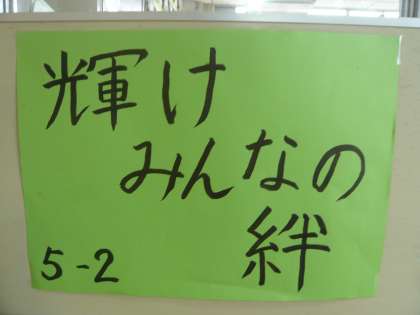 輝け
みんなの
絆
5-2